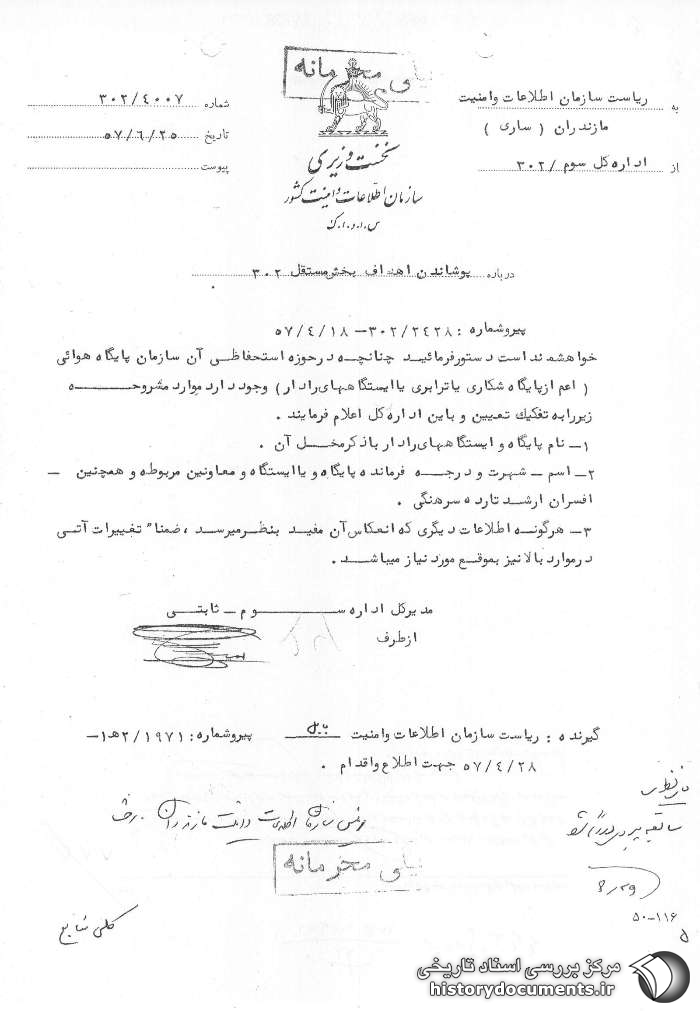 خیلی محرمانه
به ریاست سازمان اطلاعات وامنیت
مازندران ( ساری )
از اداره کل سوم /۳۰۲
شماره ۳۰۲/۴۰۰۷
تاریخ ۵۷/۶/۲۵
پیوست
نخست وزیری
سازمان اطلاعات و امنیت کشور
س.ا.و.ا.ک
درباره پوشاندن اهداف بخش مستقل ۳۰۲
پیروشماره : ۳۰۲/۲۴۲۸ – ۵۷/۴/۱۸
خواهشمنداست دستورفرمائید چنانچه درحوزه استحفاظی آن سازمان پایگاه هوائی
( اعم ازپایگاه شکاری یاترابری یاایستگاههای رادار) وجود دارد موارد مشروحه
زیررابه تفکیک تعیین و باین اداره کل اعلام فرمایند .
۱– نام پایگاه و ایستگاههای رادار باذکرمحل آن .
۲– اسم – شهرت و درجه فرمانده پایگاه و یاایستگاه و معاونین مربوطه و همچنین –
افسران ارشد تارده سرهنگی .
۳– هرگونه اطلاعات دیگری که انعکاس آن مفید بنظرمیرسد ، ضمنا" تغییرات آتی
درموارد بالانیز بموقع مورد نیاز میباشد .
مدیرکل اداره سوم – ثابتی
ازطرف
گیرنده : ریاست سازمان اطلاعات وامنیت بابل پیروشماره : ۲/۱۹۷۱ه‍۱–
۵۷/۴/۲۸ جهت اطلاع واقدام .
سازمان اطلاعات و امنیت مازندران
خیلی محرمانه
۵۰-۱۱۶
مرکز بررسی اسناد تاریخی
historydocuments.ir